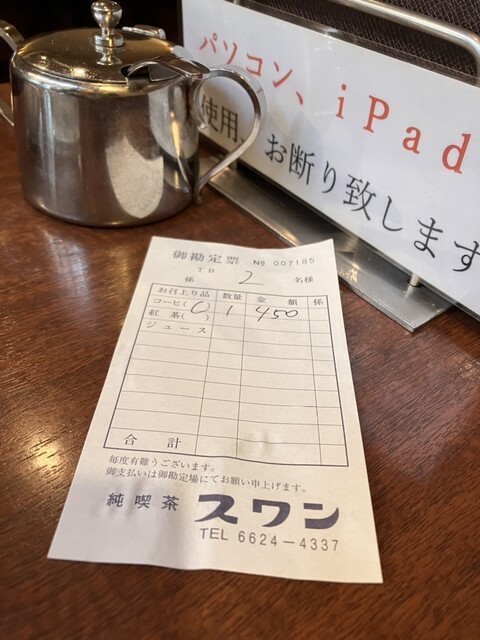 パソコン、iPad
使用、お断り致します
御勘定票 № 007185
T D
係 2 名様
お召上り品 数量 金額 係
コーヒ( C ) 1 450
紅茶( )
ジュース
合計
毎度有難うございます。
御支払いは御勘定場にてお願い申上げます。
純喫茶 スワン
TEL 6624-4337